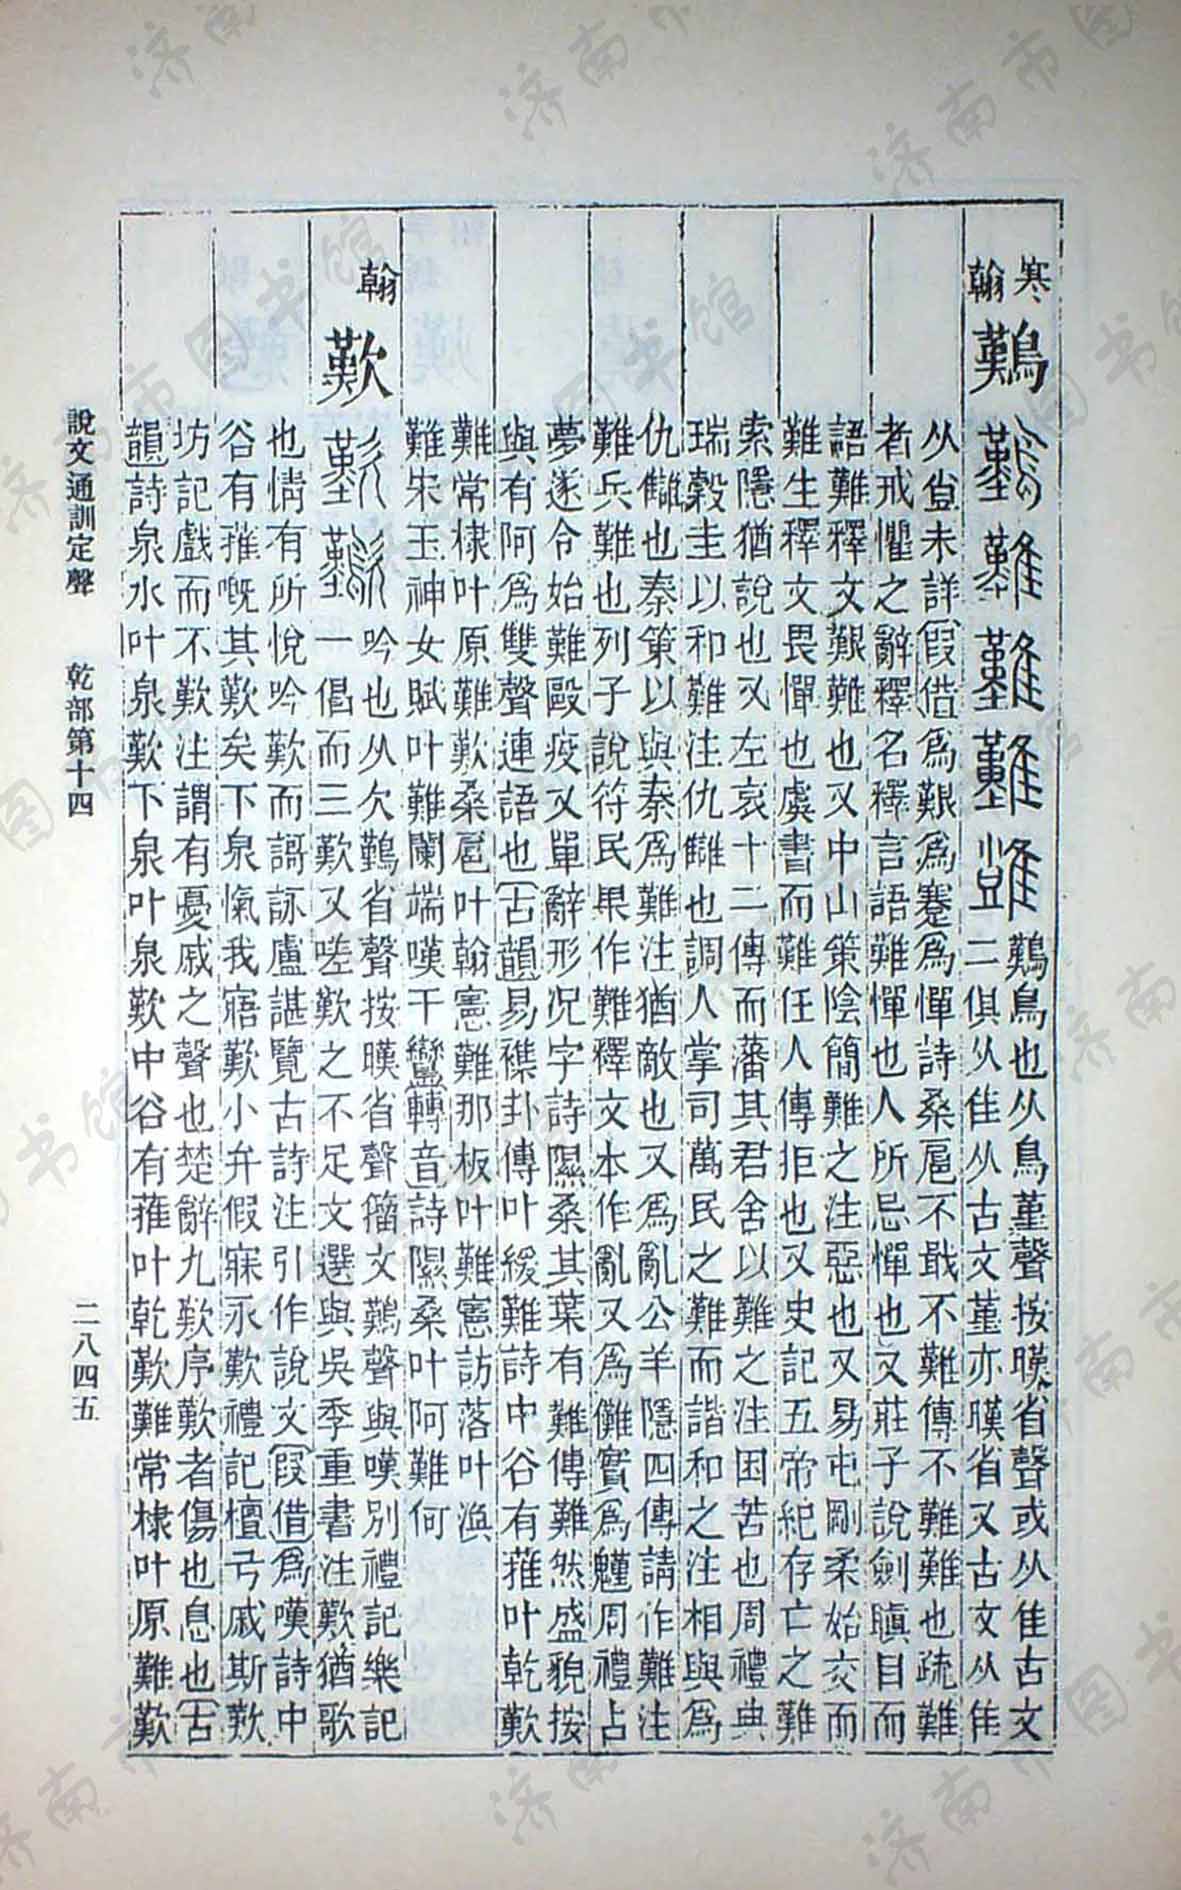 寒
翰
鷬
鷬鳥也从鳥堇聲按暵省聲或从隹古文
二俱从隹从古文堇亦暵省又古文从隹
从豈未詳假借爲艱爲蹇爲憚詩桑扈不戢不難傳不難難也疏難
者戒懼之辭釋名釋言語難憚也人所忌憚也又莊子說劍瞋目而
語難釋文艱難也又中山策陰簡難之注惡也又易屯剛柔始交而
難生釋文畏憚也虞書而難任人傳拒也又史記五帝紀存亡之難
索隱猶說也又左哀十二傳而藩其君舍以難之注困苦也周禮典
瑞穀圭以和難注仇讎也調人掌司萬民之難而諧和之注相與爲
仇讎也秦策以與秦爲難注猶敵也又爲亂公羊隱四傳請作難注
難兵難也列子說符民果作難釋文本作亂又爲儺實爲魌周禮占
夢遂令始難毆疫又單辭形況字詩隰桑其葉有難傳難然盛貌按
與有阿爲雙聲連語也古韻易襍卦傳叶緩難詩中谷有蓷叶乾歎
難常棣叶原難歎桑扈叶翰憲難那板叶難憲訪落叶渙
難宋玉神女賦叶難闌端嘆干鸞轉音詩隰桑叶阿難何
翰
歎
吟也从欠鷬省聲按暵省聲籀文鷬聲與嘆別禮記樂記
一倡而三歎又嗟歎之不足文選與吳季重書注歎猶歌
也情有所悅吟歎而謌詠盧諶覽古詩注引作說文假借爲嘆詩中
谷有蓷嘅其歎矣下泉愾我寤歎小弁假寐永歎禮記檀弓戚斯歎
坊記戲而不歎注謂有憂戚之聲也楚辭九歎序歎者傷也息也古
韻詩泉水叶泉歎下泉叶泉歎中谷有蓷叶乾歎難常棣叶原難歎
說文通訓定聲　乾部第十四　二八四五
济南市图书馆